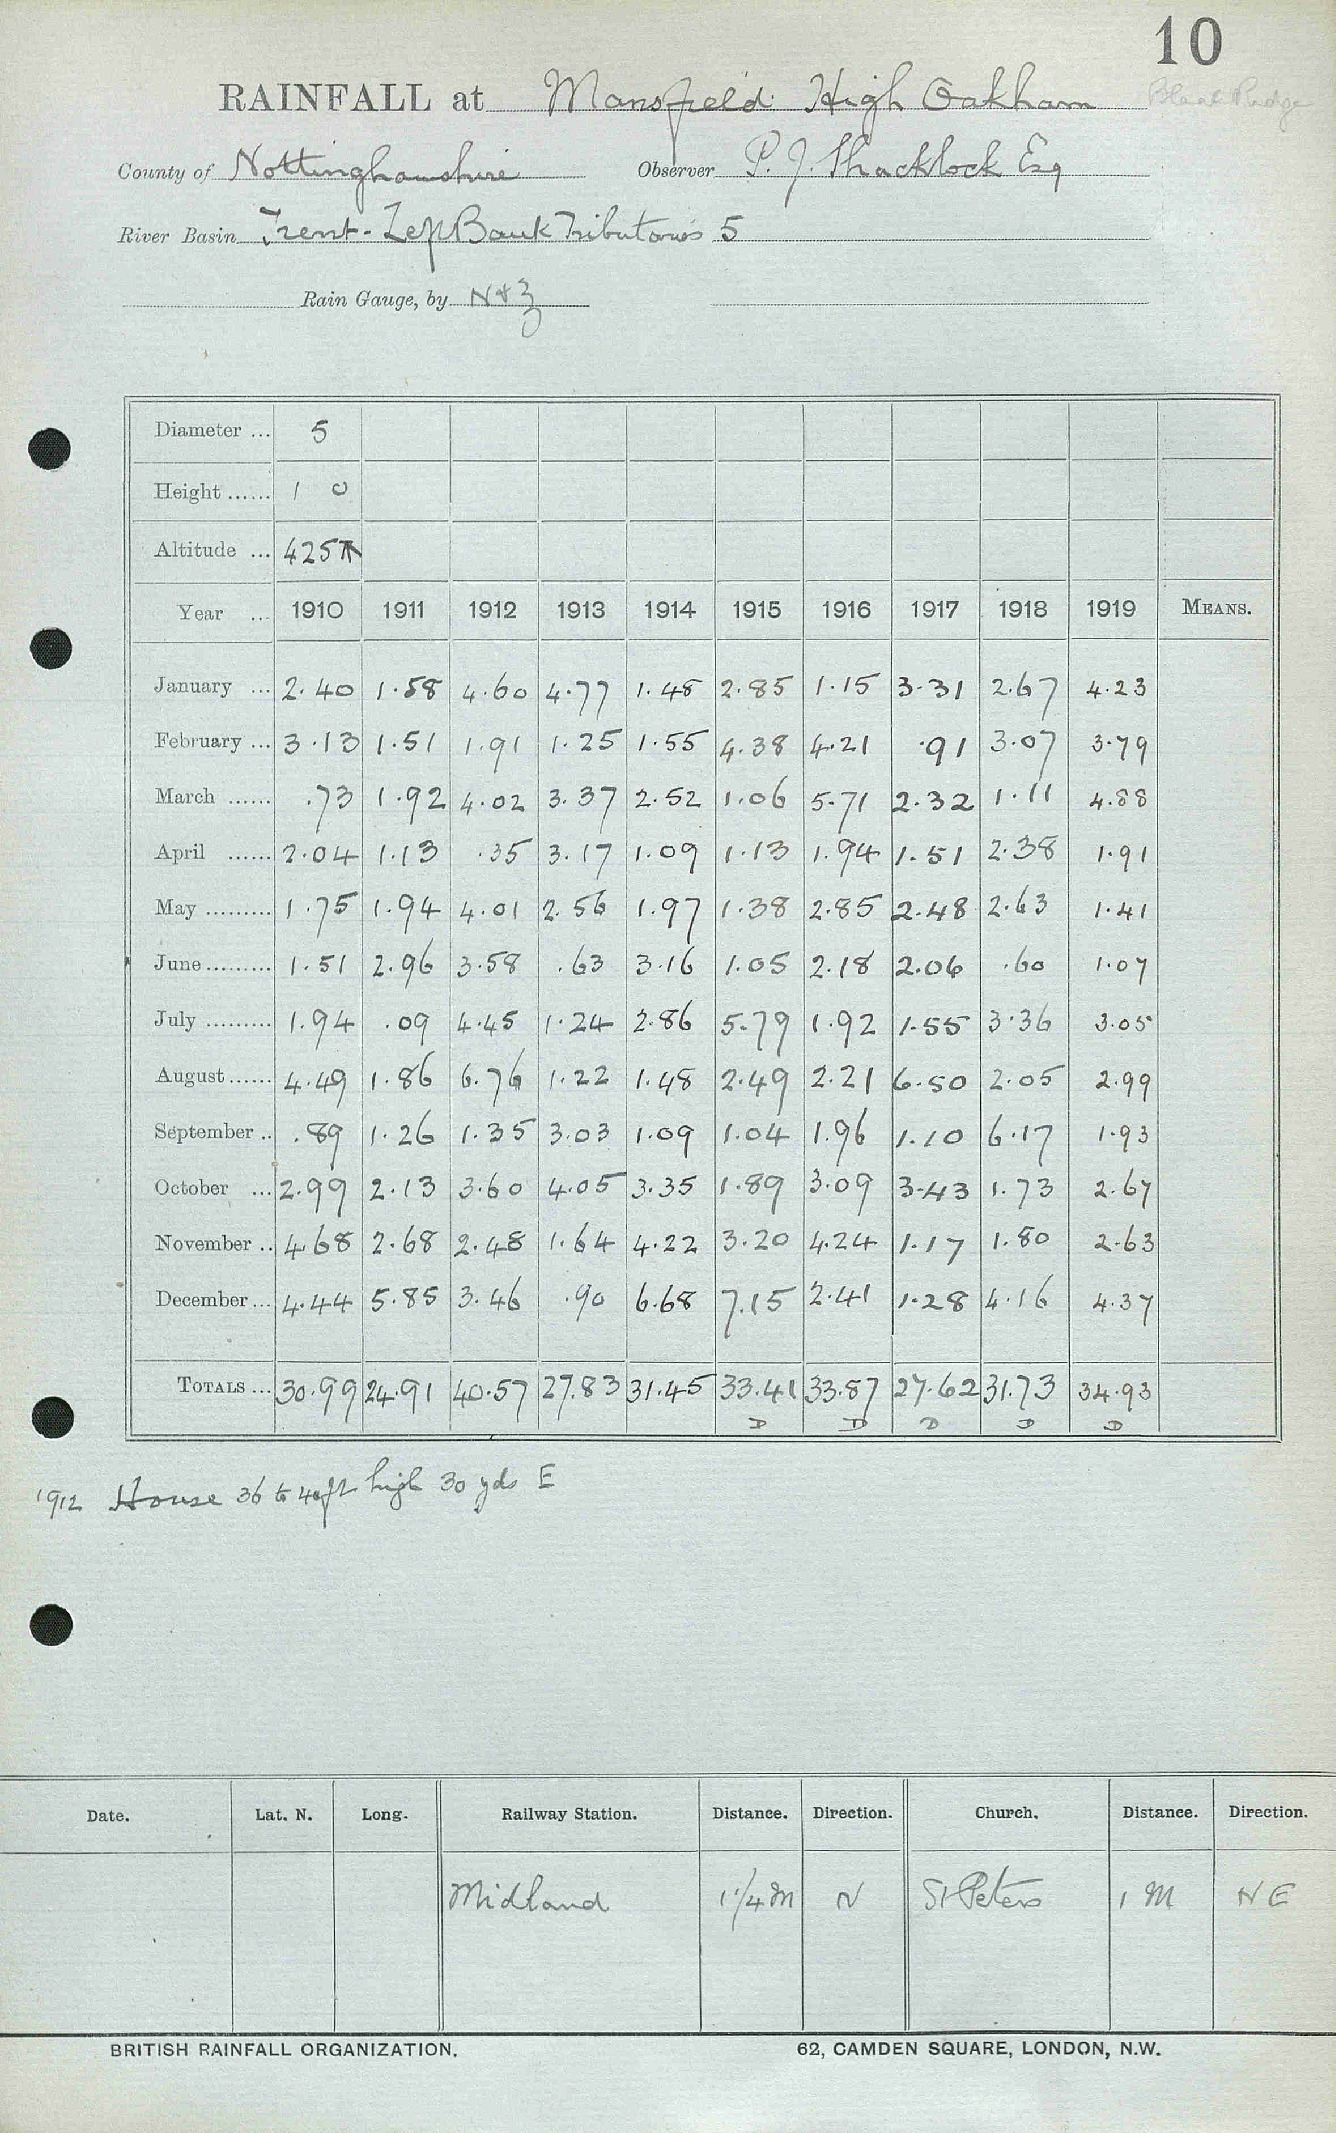 10
RAINFALL at Mansfield High Oakham
County of Nottinghamshire Observer P. J. Shacklock Esq
River Basin Trent - Left Bank Tributaries 5
Rain Gauge, by N & Z
Diameter ... 5
Height ...... 1 0
Altitude ... 425
Year ... 1910 1911 1912 1913 1914 1915 1916 1917 1918 1919 MEANS.
January ... 2.40 1.58 4.60 4.77 1.48 2.85 1.15 3.31 2.67 4.23
February ... 3.13 1.51 1.91 1.25 1.55 4.38 4.21 .91 3.07 3.79
March ...... .73 1.92 4.02 3.37 2.52 1.06 5.71 2.32 1.11 4.88
April ...... 2.04 1.13 .35 3.17 1.09 1.13 1.94 1.51 2.38 1.91
May ......... 1.75 1.94 4.01 2.56 1.97 1.38 2.85 2.48 2.63 1.41
June ......... 1.51 2.96 3.58 .63 3.16 1.05 2.18 2.06 .60 1.07
July ......... 1.94 .09 4.45 1.24 2.86 5.79 1.92 1.55 3.36 3.05
August ...... 4.49 1.86 6.76 1.22 1.48 2.49 2.21 6.50 2.05 2.99
September .. .89 1.26 1.35 3.03 1.09 1.04 1.96 1.10 6.17 1.93
October ... 2.99 2.13 3.60 4.05 3.35 1.89 3.09 3.43 1.73 2.67
November .. 4.68 2.68 2.48 1.64 4.22 3.20 4.24 1.17 1.80 2.63
December ... 4.44 5.85 3.46 .90 6.68 7.15 2.41 1.28 4.16 4.37
TOTALS ... 30.99 24.91 40.57 27.83 31.45 33.41 33.87 27.62 31.73 34.93
D D D D D
1912 House 36 to 40ft high 30 yds E
Date. Lat. N. Long. Railway Station. Distance. Direction. Church. Distance. Direction.
Midland 1 1/4 M N St Peters 1 M N E
BRITISH RAINFALL ORGANIZATION. 62, CAMDEN SQUARE, LONDON, N.W.